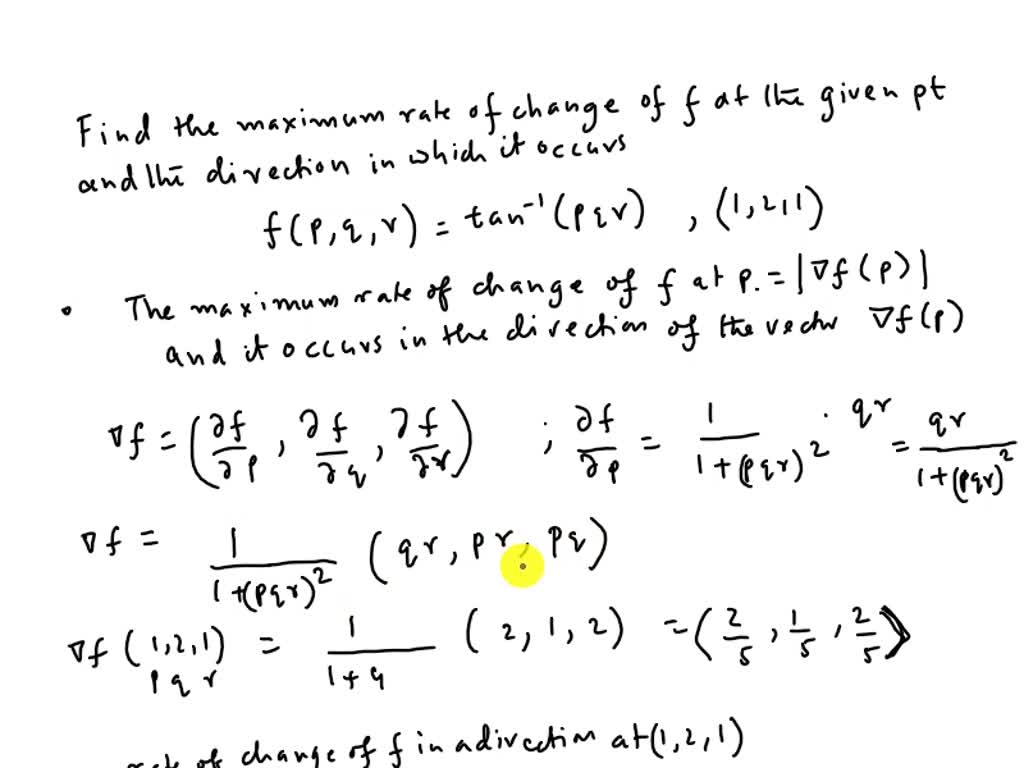 Find the maximum rate of change of f at the given pt
and the direction in which it occurs
f(p,q,r) = tan⁻¹(pqr) , (1,2,1)
• The maximum rate of change of f at p. = |∇f(p)|
and it occurs in the direction of the vector ∇f(p)
∇f = (∂f/∂p, ∂f/∂q, ∂f/∂r) ; ∂f/∂p = 1/(1+(pqr)²) · qr = qr/(1+(pqr)²)
∇f = 1/(1+(pqr)²) (qr, pr, pq)
∇f (1,2,1) = 1/(1+4) (2,1,2) = (2/5, 1/5, 2/5)
p q r
rate of change of f in a direction at (1,2,1)